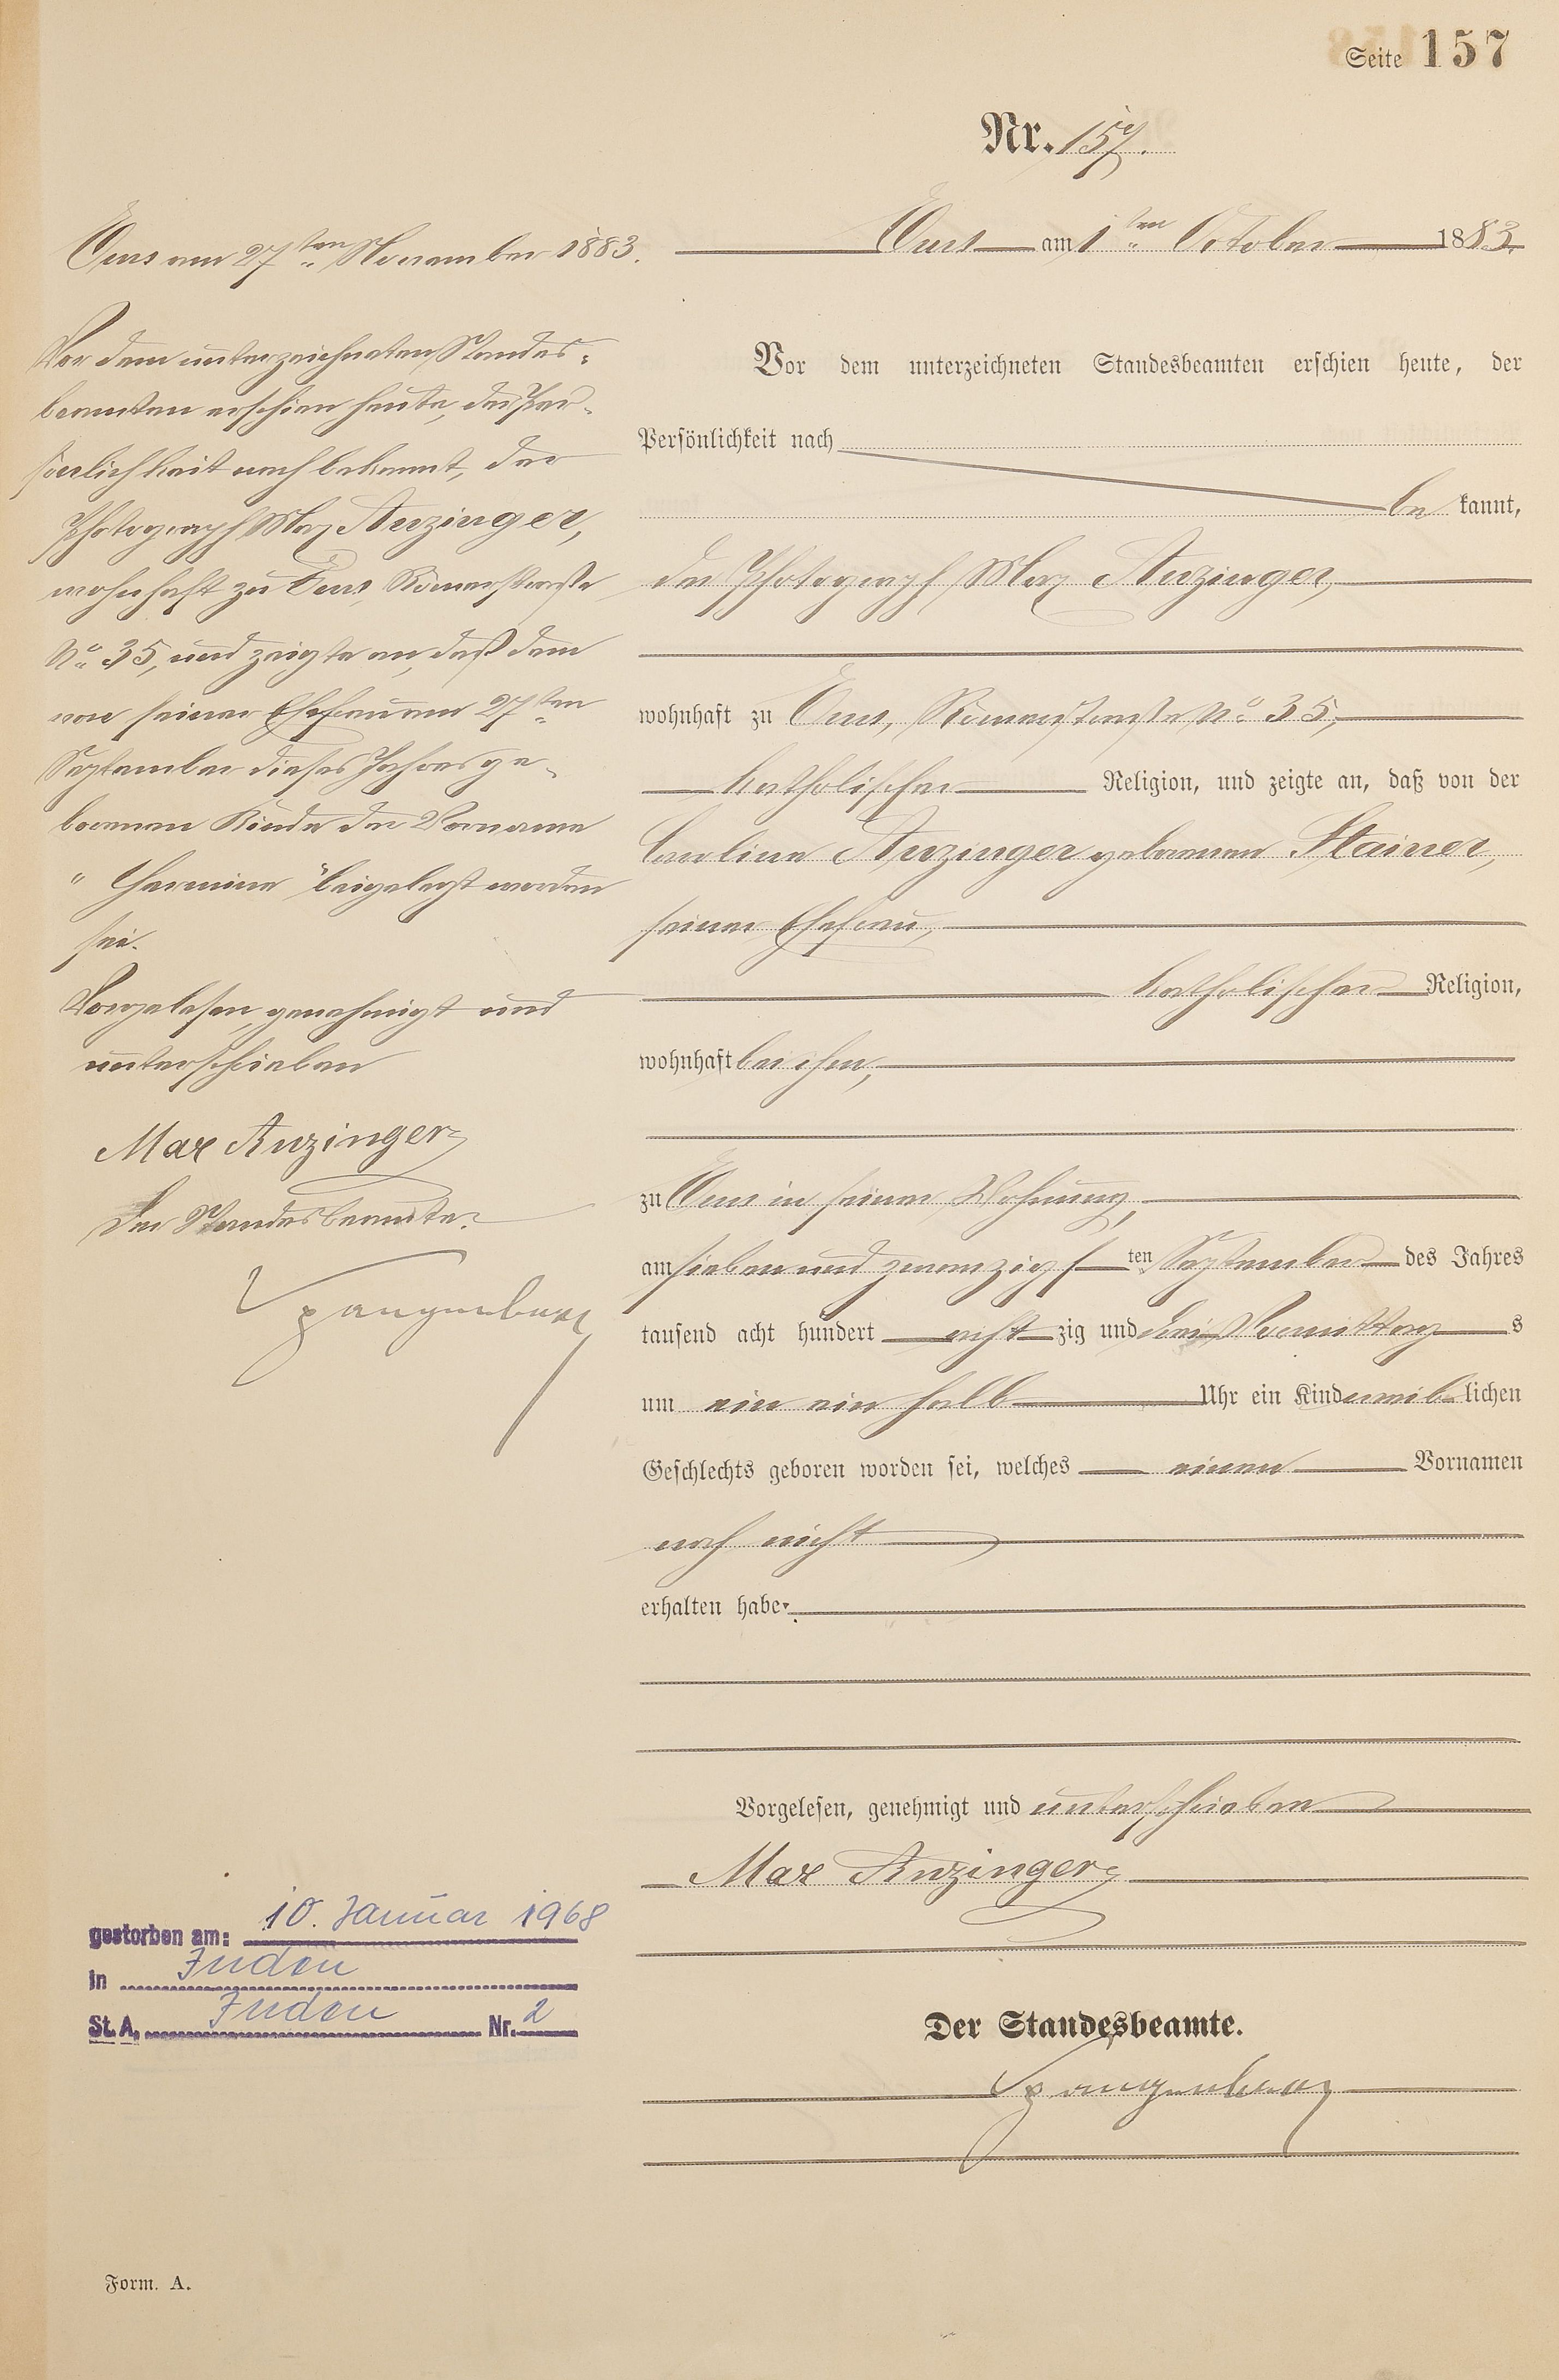 Seite 157
Nr. 157.
Ems am 1ten October 1883.
Vor dem unterzeichneten Standesbeamten erschien heute, der
Persönlichkeit nach
be kannt,
der Photograph Max Anzinger,
wohnhaft zu Ems, Römerstraße No 35,
katholischer Religion, und zeigte an, daß von der
Caroline Anzinger geborenen Stainer,
seiner Ehefrau,
katholischer Religion,
wohnhaft bei ihm,
zu Ems in seiner Wohnung,
am sieben und zwanzigs ten September des Jahres
tausend acht hundert acht zig und drei Vormittag s
um ein ein halb Uhr ein Kind weib lichen
Geschlechts geboren worden sei, welches einen Vornamen
noch nicht
erhalten habe.
Vorgelesen, genehmigt und unterschrieben
Max Anzinger
Der Standesbeamte.
Spangenberg
Ems am 27ten November 1883.
Vor dem unterzeichneten Standes-
beamten erschien heute, der Per-
sönlichkeit nach bekannt, der
Photograph Max Anzinger,
wohnhaft zu Ems, Römerstraße
No 35, und zeigte an, daß dem
von seiner Ehefrau am 27ten
September dieses Jahres ge-
borenen Kinde der Vorname
"Hermine" beigelegt worden
sei.
Vorgelesen, genehmigt und
unterschrieben
Max Anzinger
Der Standesbeamte.
Spangenberg
gestorben am: 10. Januar 1968
in Inden
St. A. Inden Nr. 2
Form. A.